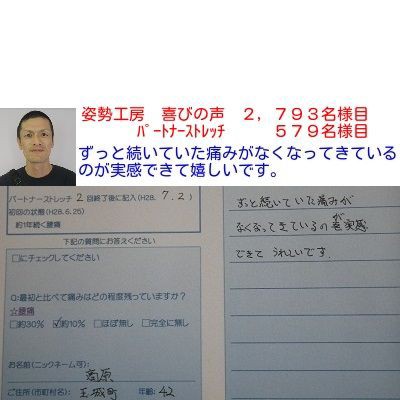 姿勢工房 喜びの声 2,793名様目
パートナーストレッチ 579名様目
ずっと続いていた痛みがなくなってきている
のが実感できて嬉しいです。
パートナーストレッチ 2 回終了後に記入(H28. 7.2)
初回の状態(H28.6.25)
約1年続く腰痛
下記の質問にお答えください
□にチェックしてください
Q:最初と比べて痛みはどの程度残っていますか?
☆腰痛
□約30% ☑約10% □ほぼ無し □完全に無し
お名前(ニックネーム可):
ご住所(市町村名): 玉城町 年齢: 42
ずっと続いていた痛みが
なくなってきているのが実感
できて うれしいです。